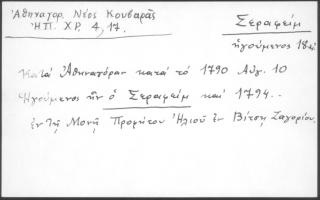 Ἀθηναγορ. Νέος Κουβαρᾶς
ΗΠ. ΧΡ. 4, 17.
Σεραφείμ
ἡγούμενος 18
Κατὰ Ἀθηναγόραν κατά τό 1790 Αὐγ. 10
Ἡγούμενος ἦν ὁ Σεραφείμ καί 1794..
ἐν τῇ Μονῇ Προφήτου Ἠλιοῦ ἐν Βίτσῃ Ζαγορίου.